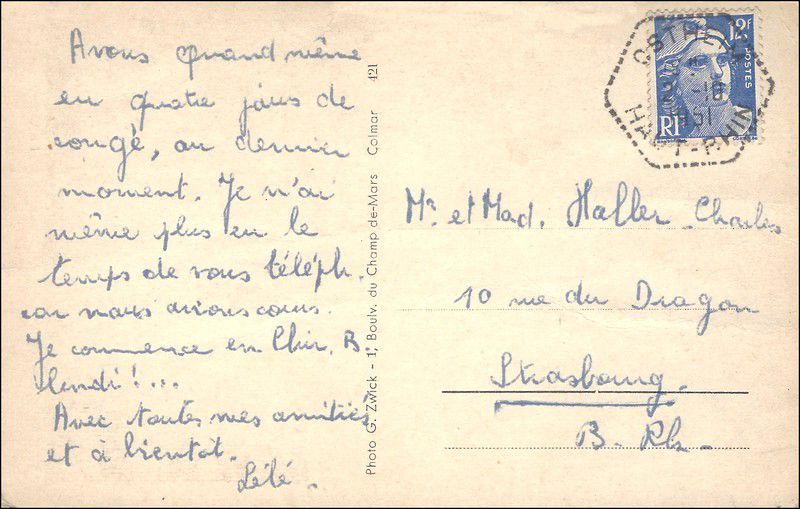 Avons quand même
en quatre jours de
congé, au dernier
moment. Je n'ai
même plus eu le
temps de vous téléph.
car nous avions cours.
Je commence en Chir. B.
lundi!...
Avec toutes mes amitiés
et à bientot.
Lélé.
Photo G. Zwick - 1, Boulv. du Champ de-Mars Colmar 421
12F
POSTES
RF
HAUT-RHIN
Mr. et Mad. Haller Charles
10 rue du Dragon
Strasbourg.
B. Rh.